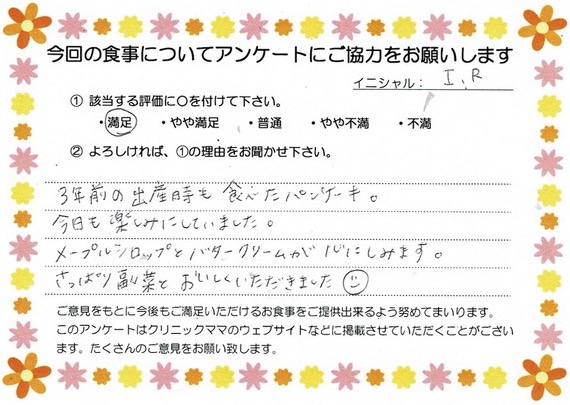 今回の食事についてアンケートにご協力をお願いします
イニシャル： I.R
① 該当する評価に〇を付けて下さい。
・満足 ・やや満足 ・普通 ・やや不満 ・不満
② よろしければ、①の理由をお聞かせ下さい。
3年前の出産時も食べたパンケーキ。
今日も楽しみにしていました。
メープルシロップとバタークリームが心にしみます。
さっぱり副菜とおいしくいただきました
ご意見をもとに今後もご満足いただけるお食事をご提供出来るよう努めてまいります。
このアンケートはクリニックママのウェブサイトなどに掲載させていただくことがござい
ます。たくさんのご意見をお願い致します。